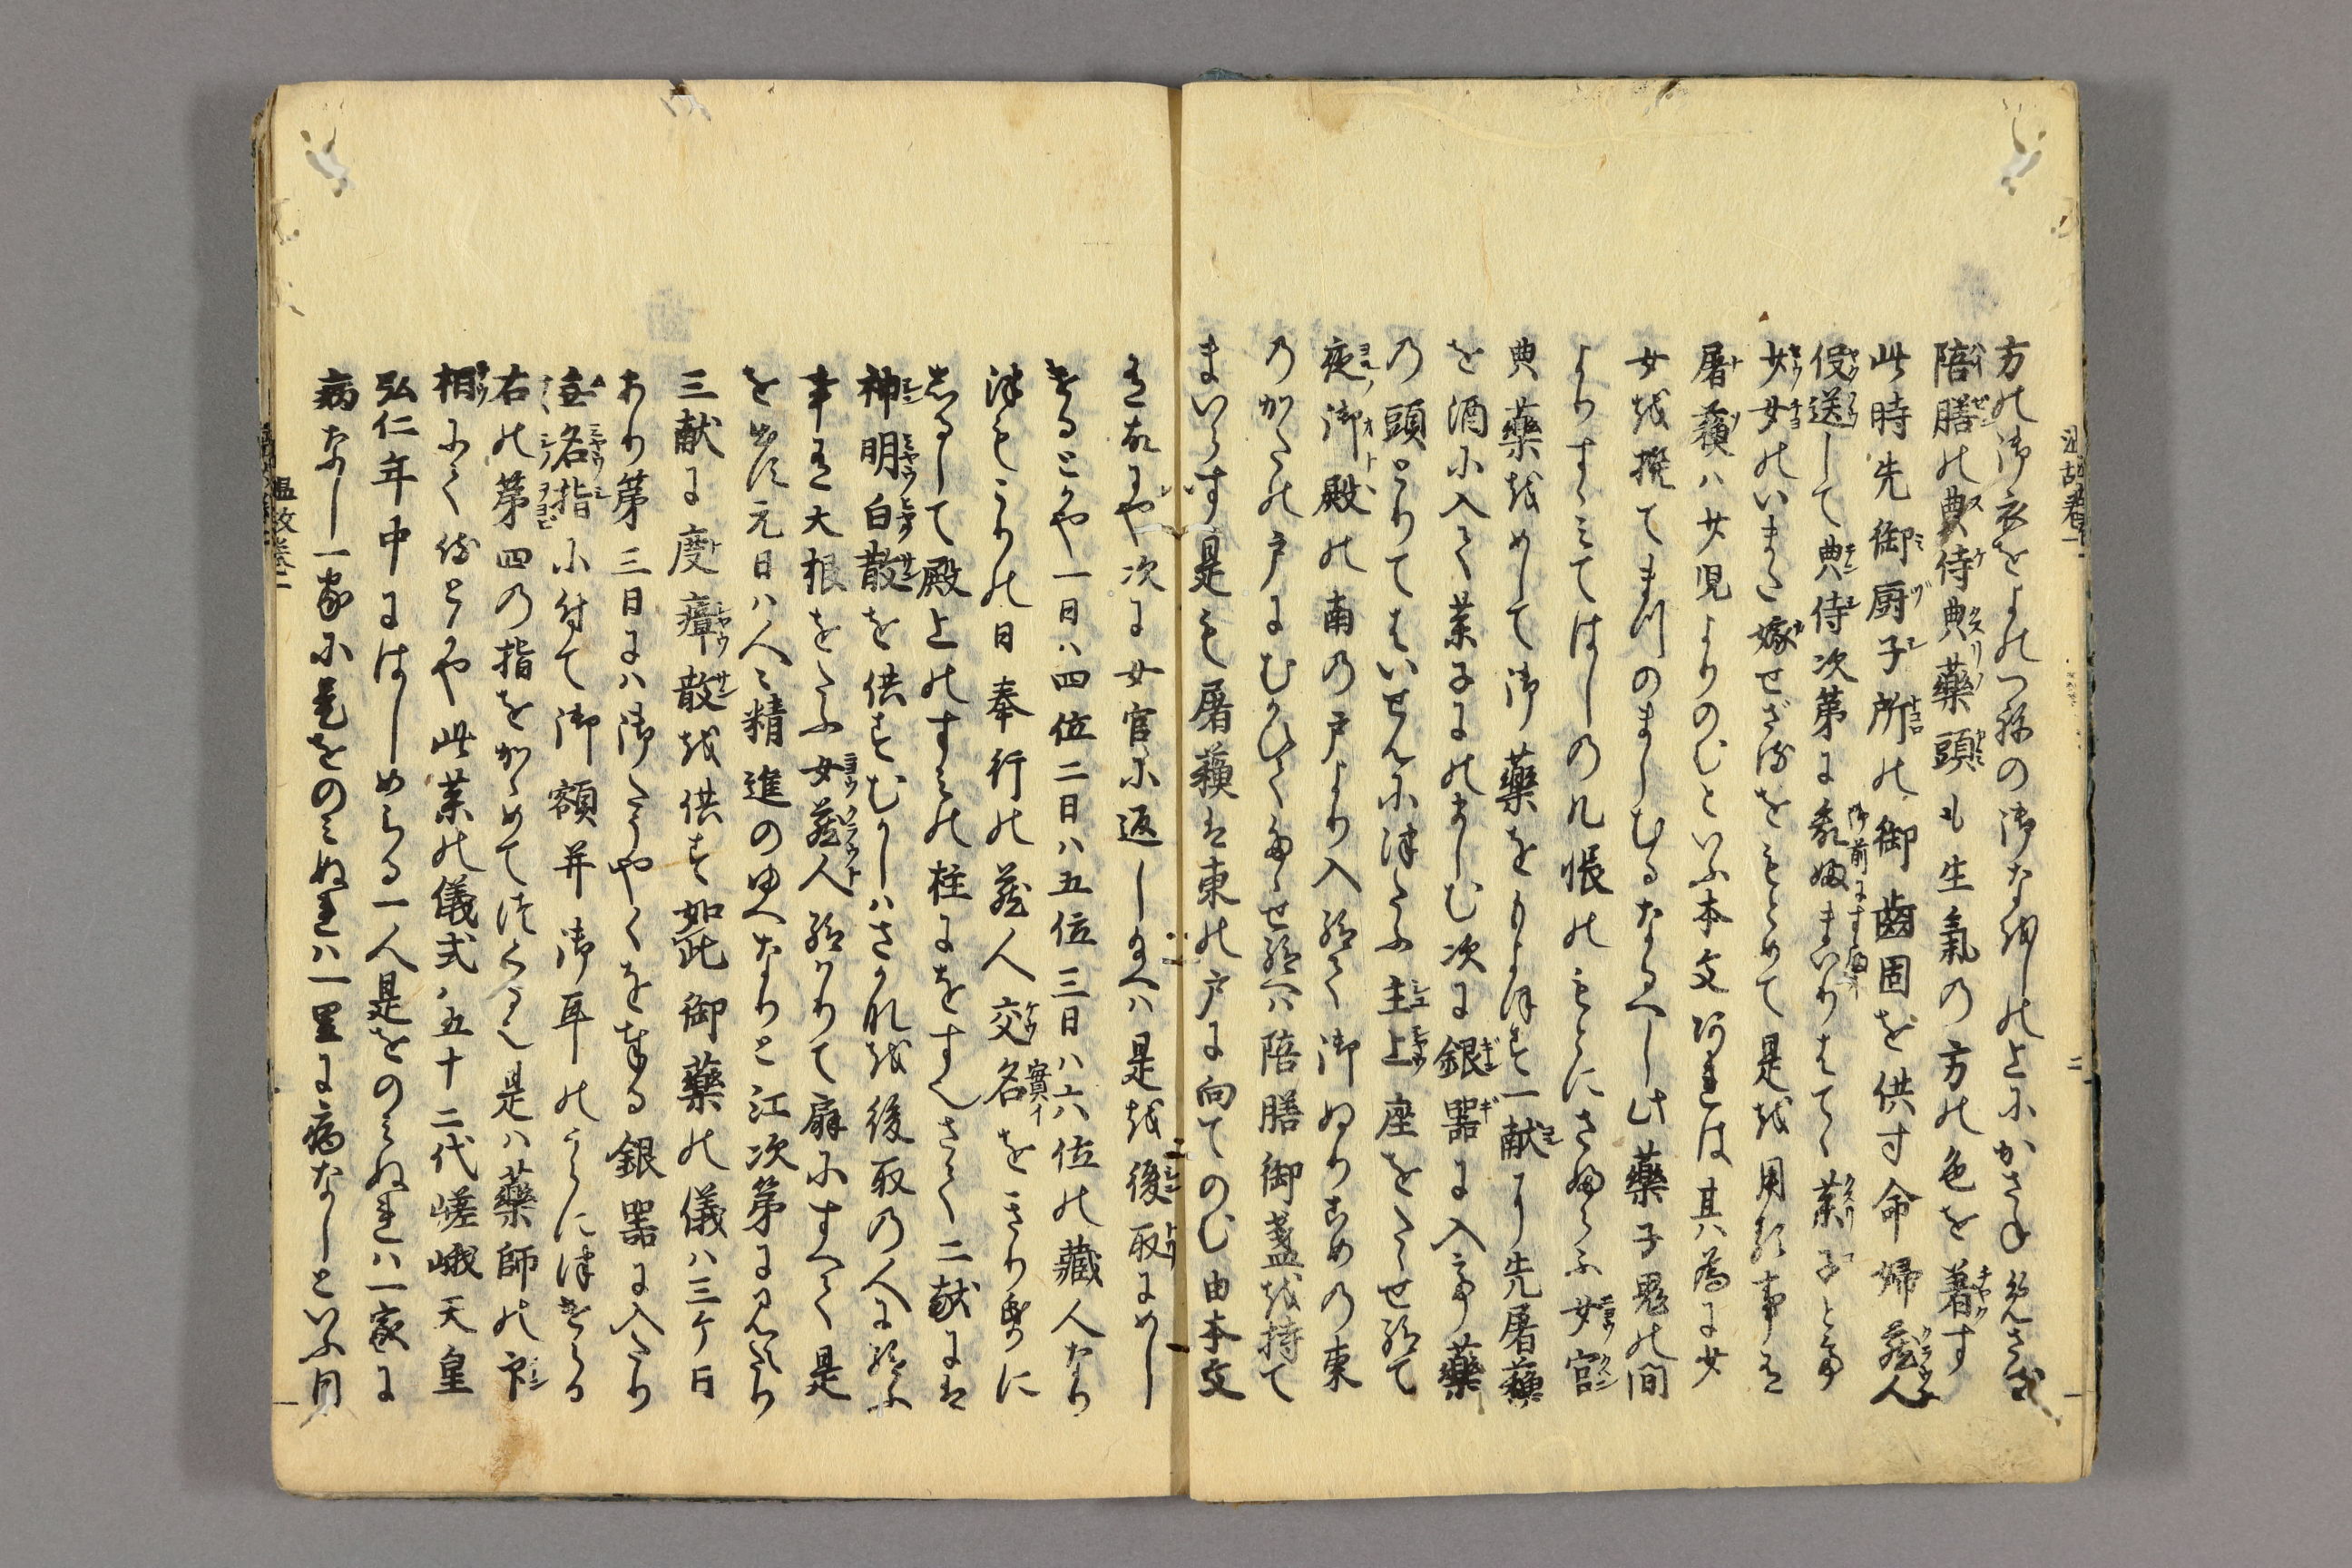 方の御衣をよのつねの御なをしの上にかさね
陪膳の典侍典藥頭も生氣の方の色を着す
此時先御厨子所の御齒固を供す命婦藏人
役送して典侍次第に参りまいりはてゝ藥子とて
少女のいまた嫁せざるをもとめて是を用る事は
屠蘓ハ少児よりのむといふ本文あれは其為に女
女を撰てまつのましむるなるへし此藥子鬼の間
よりすゝみてはしの几帳のもとにさふらふ女官
典藥をめして御藥をもよほす一献に先屠蘓
を酒に入て藥子にのましむ次に銀器に入て藥
の頭とりてはいせんに津たふ主上座をたゝせ給て
夜御殿の南の戸より入給て御ぬりこめの東
のかたの戸にむかひてたゝせ給へは陪膳御盞を持て
まいらす是も屠蘓は東の戸に向てのむ由本文
有故にや次に女官に返し給へは是を後取にめし
きるとかや一日ハ四位二日ハ五位三日ハ六位の藏人なり
津もこりの日奉行の藏人交名をきり帋に
しるして殿上のすみの柱にをすなりさて二献には
神明白散を供すむかしハさかなを後取の人に給ふ
事は大根をたふ女藏人給はりて扇にすへて是
を出す元日ハ人ミ精進のゆへなりと江次第に見えたり
三献に度瘴散を供す如此御藥の儀ハ三ケ日
あり第三日にハ御たうやくを奉る銀器に入たり
無名指に付て御額并御耳のうらに津けらる
右の第四の指をかゝめてつくる也是ハ藥師の印
相にて侍とかや此藥の儀式ハ五十二代嵯峨天皇
弘仁年中にはしめらる一人是をのみぬれハ一家に
病なし一家に是をのみぬれハ一里に病なしといふ同